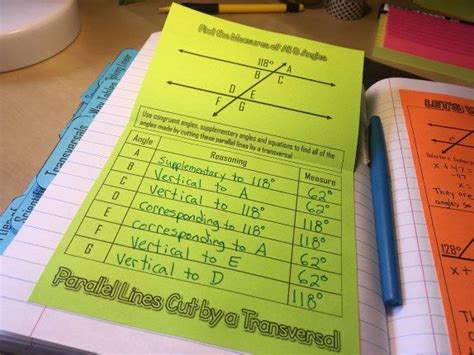 Find the Measures of All 8 Angles
118° A
B C
D E
F G
Use congruent angles, supplementary angles and equations to find all of the
angles made by cutting these parallel lines by a transversal
Angle Reasoning Measure
A Supplementary to 118° 62°
B Vertical to A 62°
C Vertical to 118° 118°
D corresponding to 118° 118°
E corresponding to A 62°
F Vertical to E 62°
G vertical to D 118°
Parallel Lines Cut by a Transversal
Transversals
LET'S
x + 47 =
They are
angles so
128°